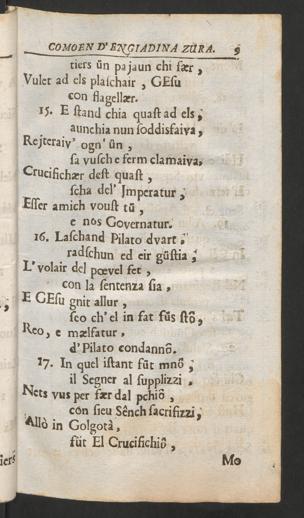 COMOEN D'ENGIADINA ZURA. 9
tiers ûn pajaun chi fær,
Vulet ad els plaschair, GEsu
con flagellær.
15. E stand chia quast ad els,
aunchia nun soddisfaiva,
Rejteraiv' ogn' ûn,
sa vusch e ferm clamaiva,
Crucifichær dest quast,
scha del' Imperatur,
Esser amich voust tü,
e nos Governatur.
16. Laschand Pilato dvart,
radschun ed eir güstia;
L'volair del pœvel fet,
con la sentenza sia,
E GEsu gnit allur,
sco ch'el in fat füs stô,
Reo, e mælfatur,
d'Pilato condannô.
17. In quel istant füt mnô,
il Segner al supplizzi,
Nets vus per fær dal pchiô,
con sieu Sênch sacrifizzi,
Allò in Golgotà,
füt El Crucifichiô,
Mo
iers